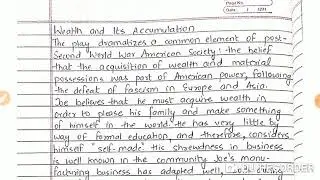 Page No.
Date
Wealth and Its Accumulation
The play dramatizes a common element of post-
Second World War American Society: the belief
that the acquisition of wealth and material
possessions was part of American power, following
the defeat of fascism in Europe and Asia.
Joe believes that he must acquire wealth in
order to please his family and make something
of himself in the world. He has very little by
way of formal education, and therefore, considers
himself "self-made". His shrewdness in business
is well known in the community. Joe's manu-
facturing business has adapted well, and during